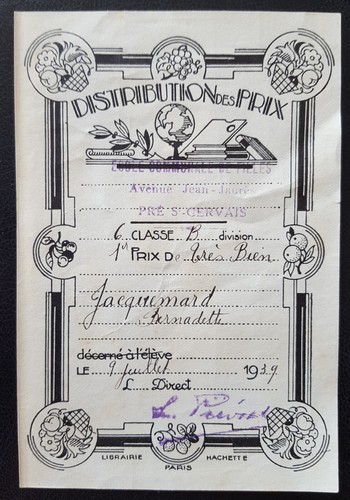 DISTRIBUTION DES PRIX
ECOLE COMMUNALE DE FILLES
Avenue Jean-Jaurès
PRÉ St GERVAIS
6 CLASSE B division
1er PRIX De Très Bien
Jacquemard
Bernadette
décerné à l'élève
LE 9 Juillet 1939
L Direct
L. Prévost
LIBRAIRIE HACHETTE
PARIS